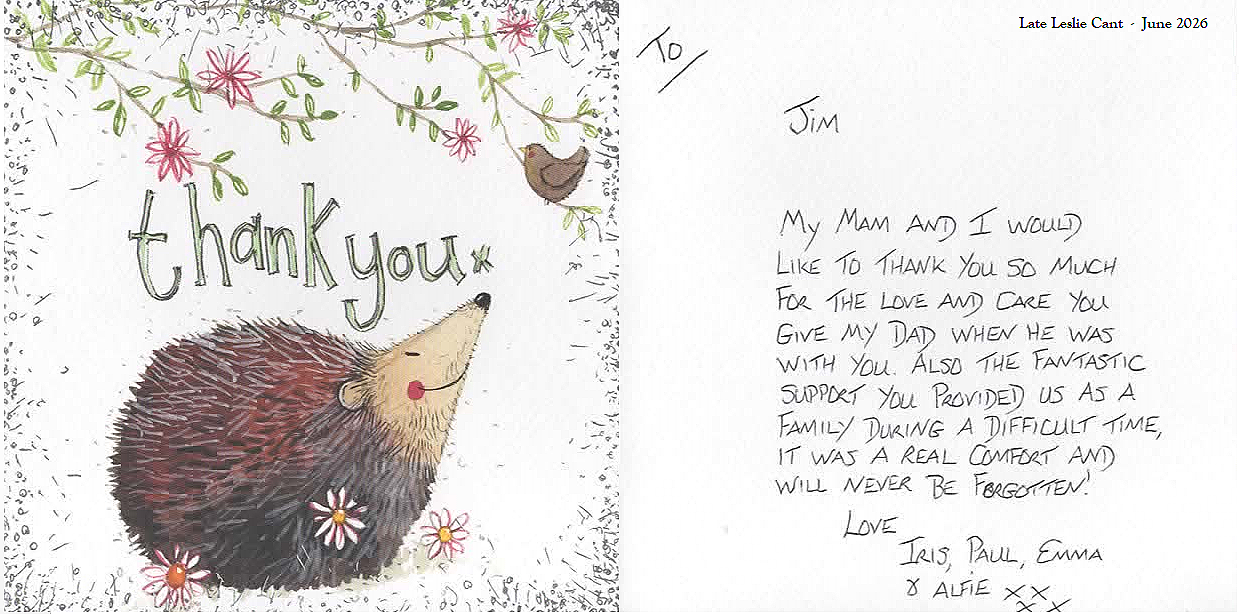 thank you x
Late Leslie Cant - June 2026
To/
Jim
My Mam and I would
like to thank you so much
for the love and care you
give my Dad when he was
with you. Also the fantastic
support you provided us as a
family during a difficult time,
it was a real comfort and
will never be forgotten!
Love
Iris, Paul, Emma
& Alfie xx
xx